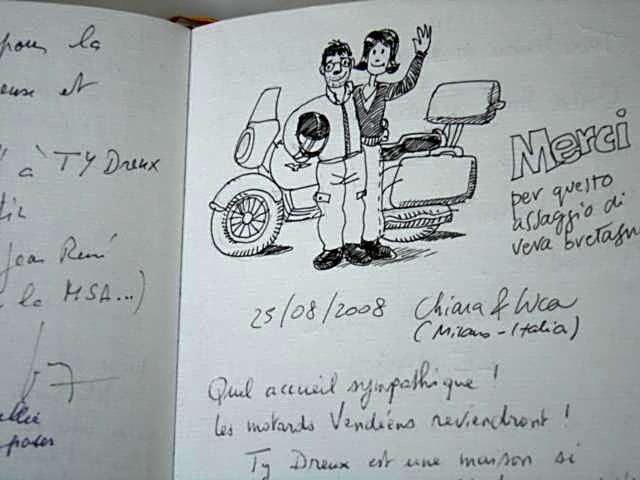 pour la
et
à TY Dreux
Jean René
la MSA...)
Merci
per questo
assaggio di
vera bretagn
25/08/2008 Chiara & Luca
(Milano - Italia)
Quel accueil sympathique !
les motards Vendéens reviendront !
Ty Dreux est une maison si